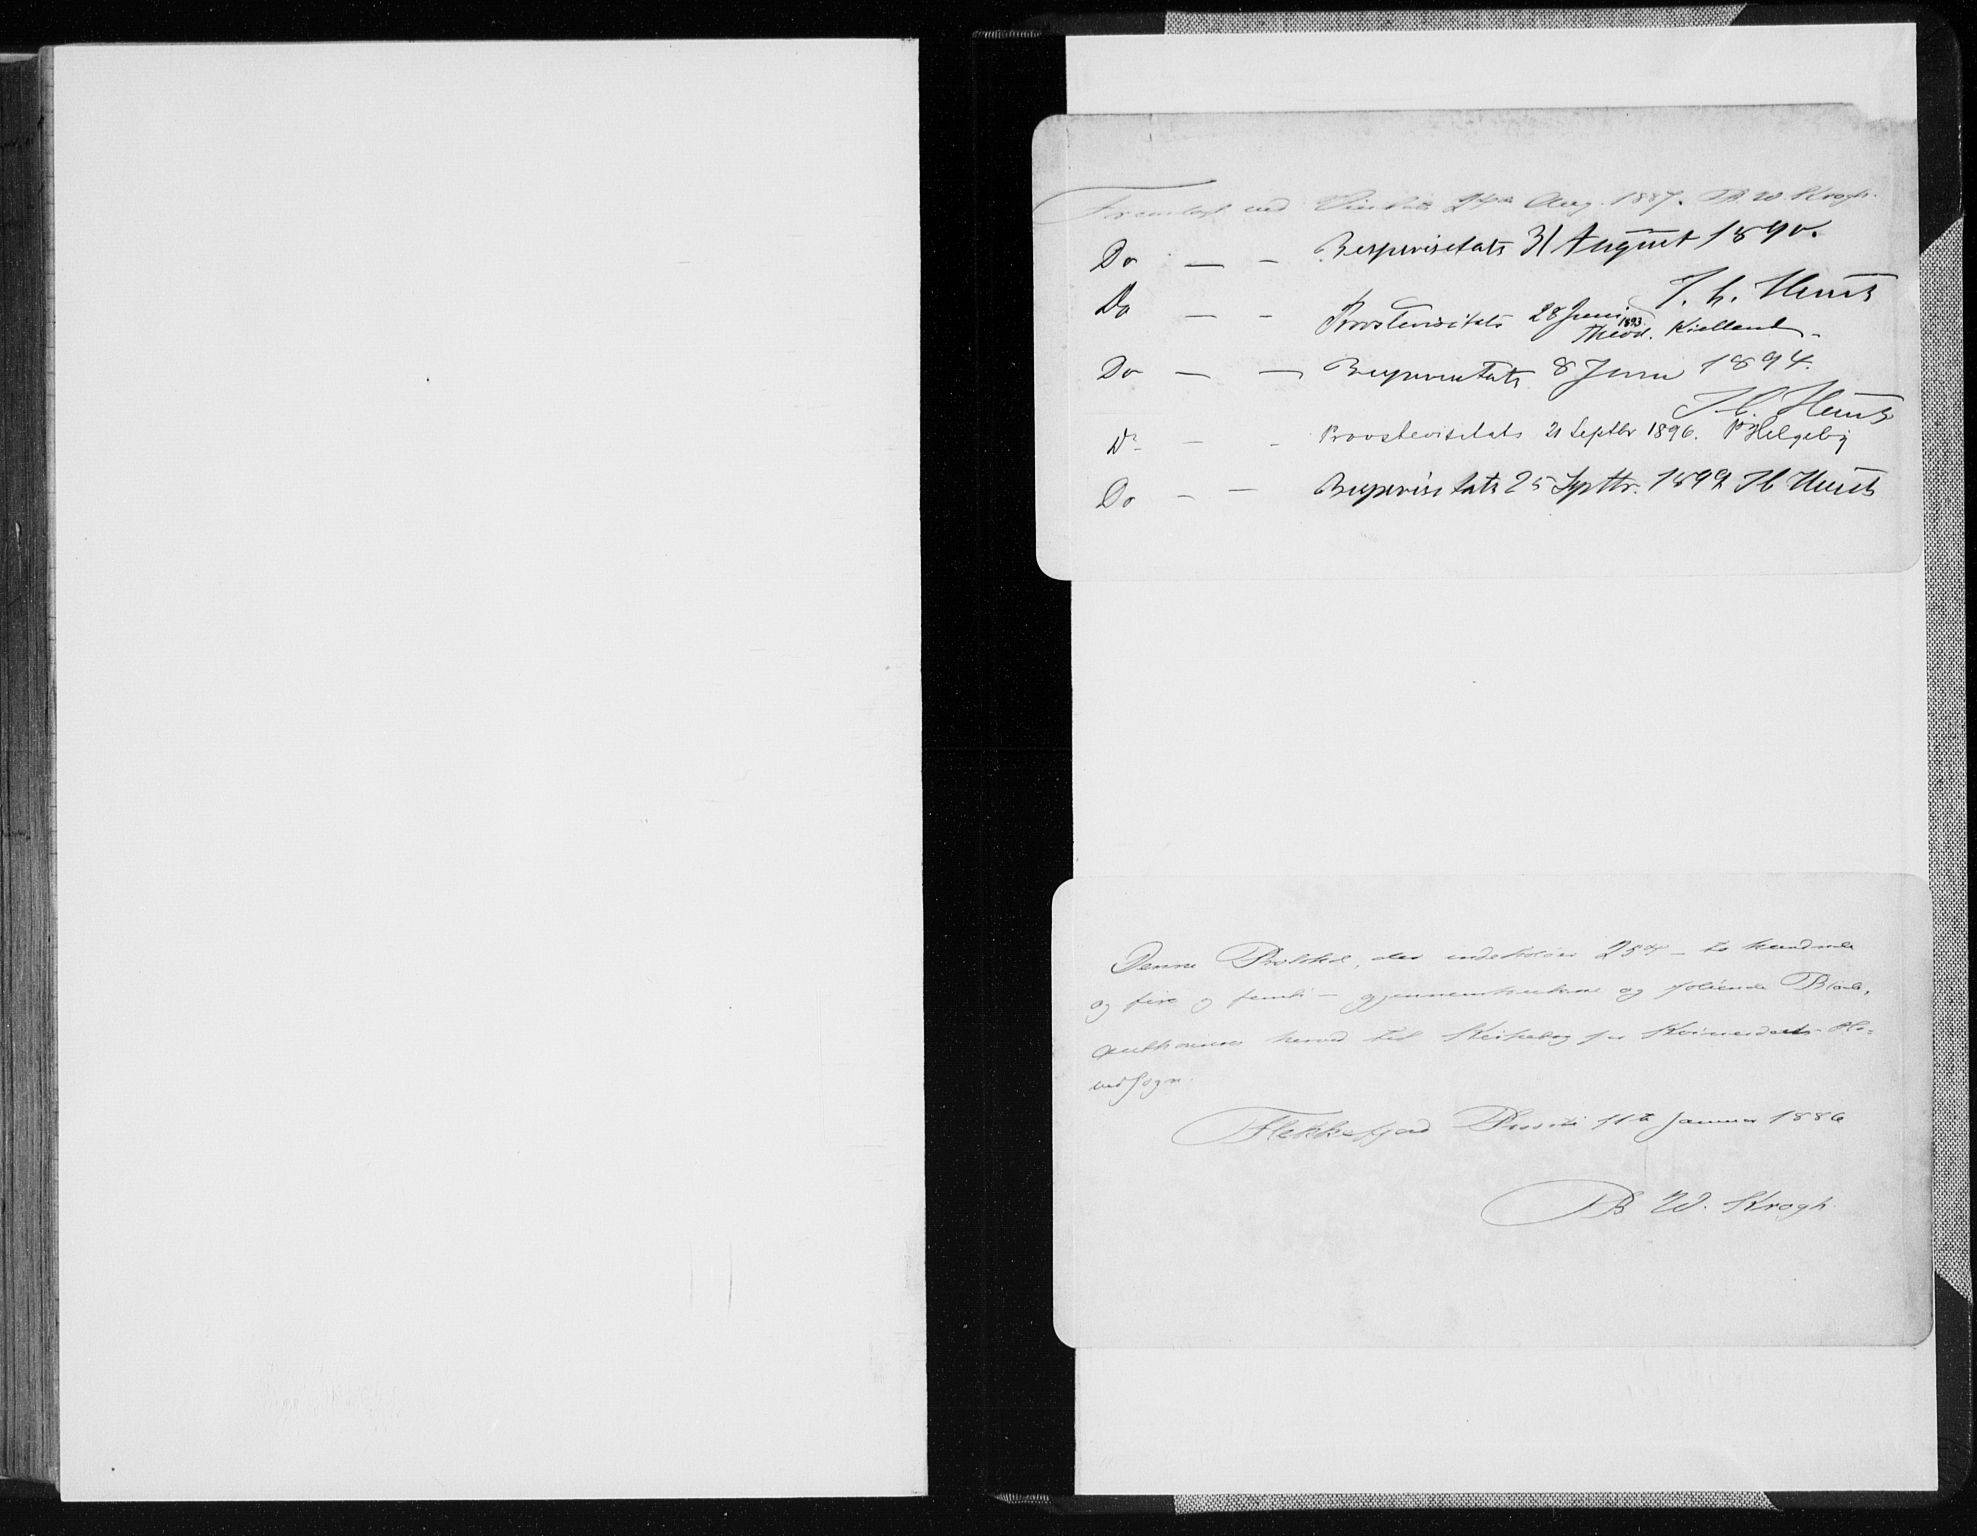 Fremlagt ved Visitats 24de Aug. 1887. B W. Krogh.
Do — - Bispevisitats 31 August 1890.
J. C. Heuch
Do - - Provstevisitats 28 Juni 1893.
Theod. Kielland.
Do — — Bispevisitats 8 Juni 1894.
J C. Heuch
Do - - Provstevisitats 21 Septbr 1896. P Helgeby
Do - - Bispevisitats 25 Septbr. 1899 J C Heuch
Denne Protokol, der indeholder 254 - to hundrede
og fire og femti - gjennemtrukne og folierede Blade,
authoriseres herved til Kirkebog for Kvinesdals Ho=
vedsogn.
Flekkefjord Provsti 11te Januar 1886
B W. Krogh.